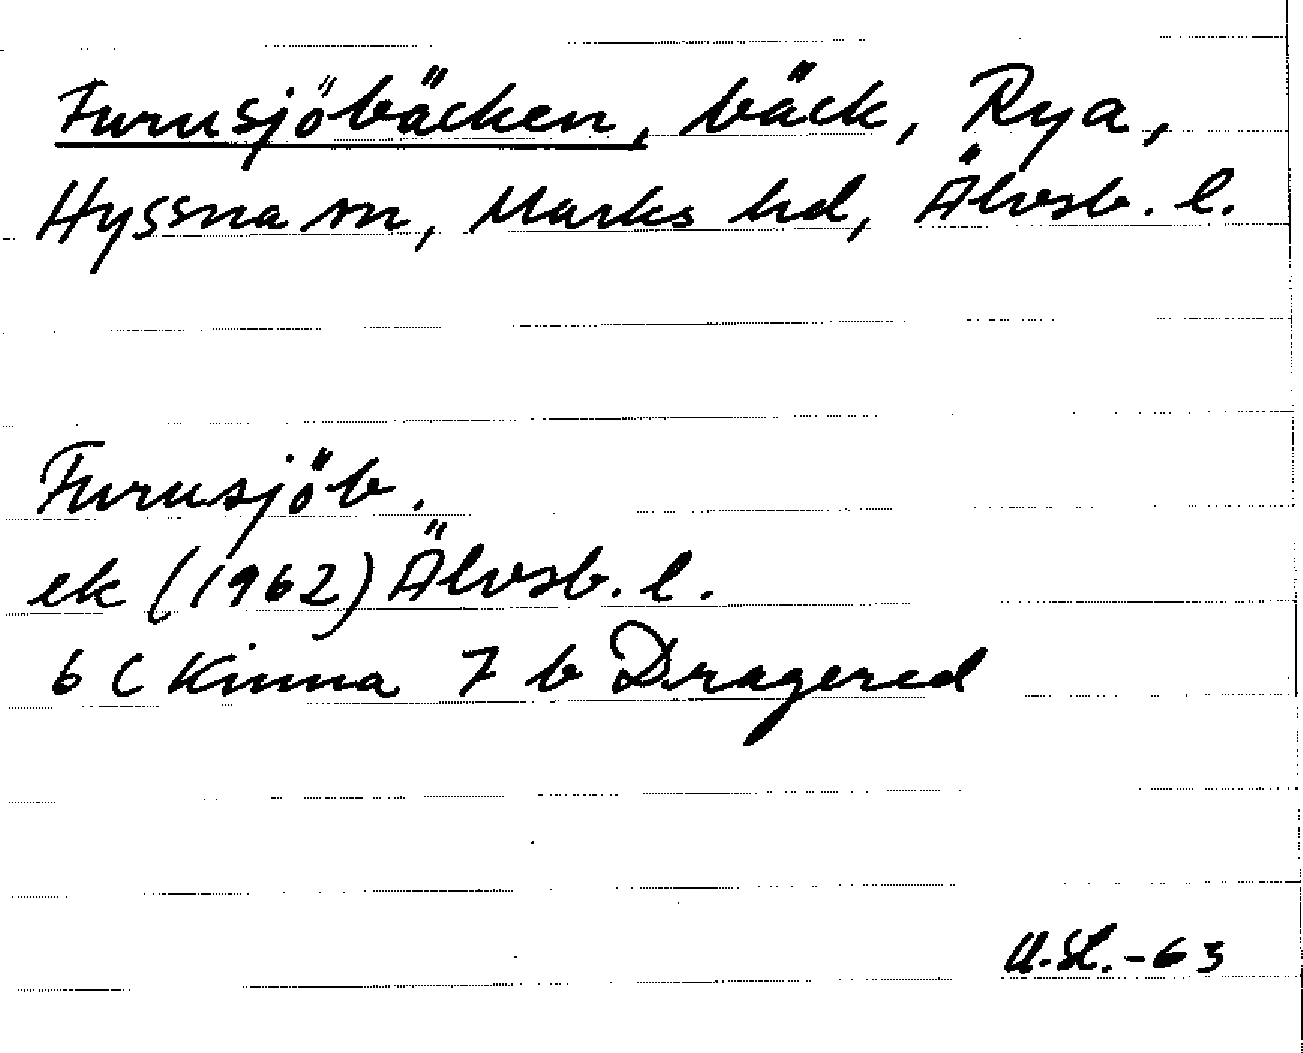 Furusjöbäcken, bäck, Rya,
Hyssna sn, Marks hd, Älvsb. l.
Furusjöb.
ek (1962) Älvsb. l.
6 C Kinna 7 b Dragered
-63